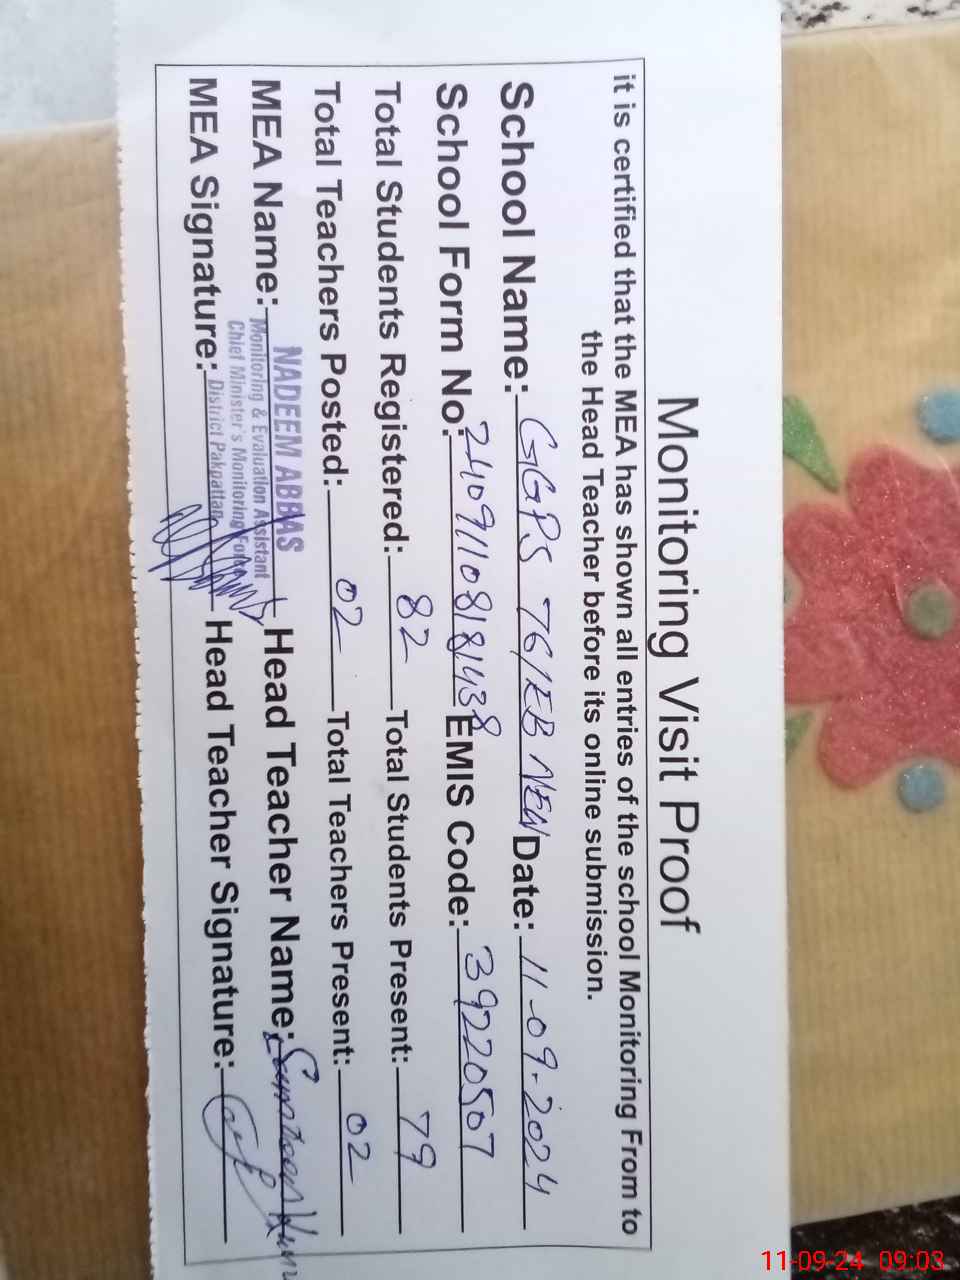 Monitoring Visit Proof
it is certified that the MEA has shown all entries of the school Monitoring From to
the Head Teacher before its online submission.
School Name: GGPS 76/EB NEW Date: 11-09-2024
School Form No: 24091108181438 EMIS Code: 39220507
Total Students Registered: 82 Total Students Present: 79
Total Teachers Posted: 02 Total Teachers Present: 02
MEA Name: NADEEM ABBAS Head Teacher Name:
Monitoring & Evaluation Assistant
Chief Minister's Monitoring Force
District Pakpattan
MEA Signature: Head Teacher Signature:
11-09-24 09:03